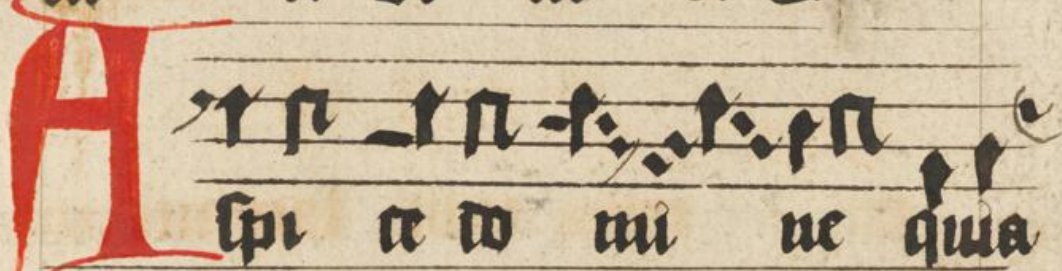 Aspi ce do mi ne quia